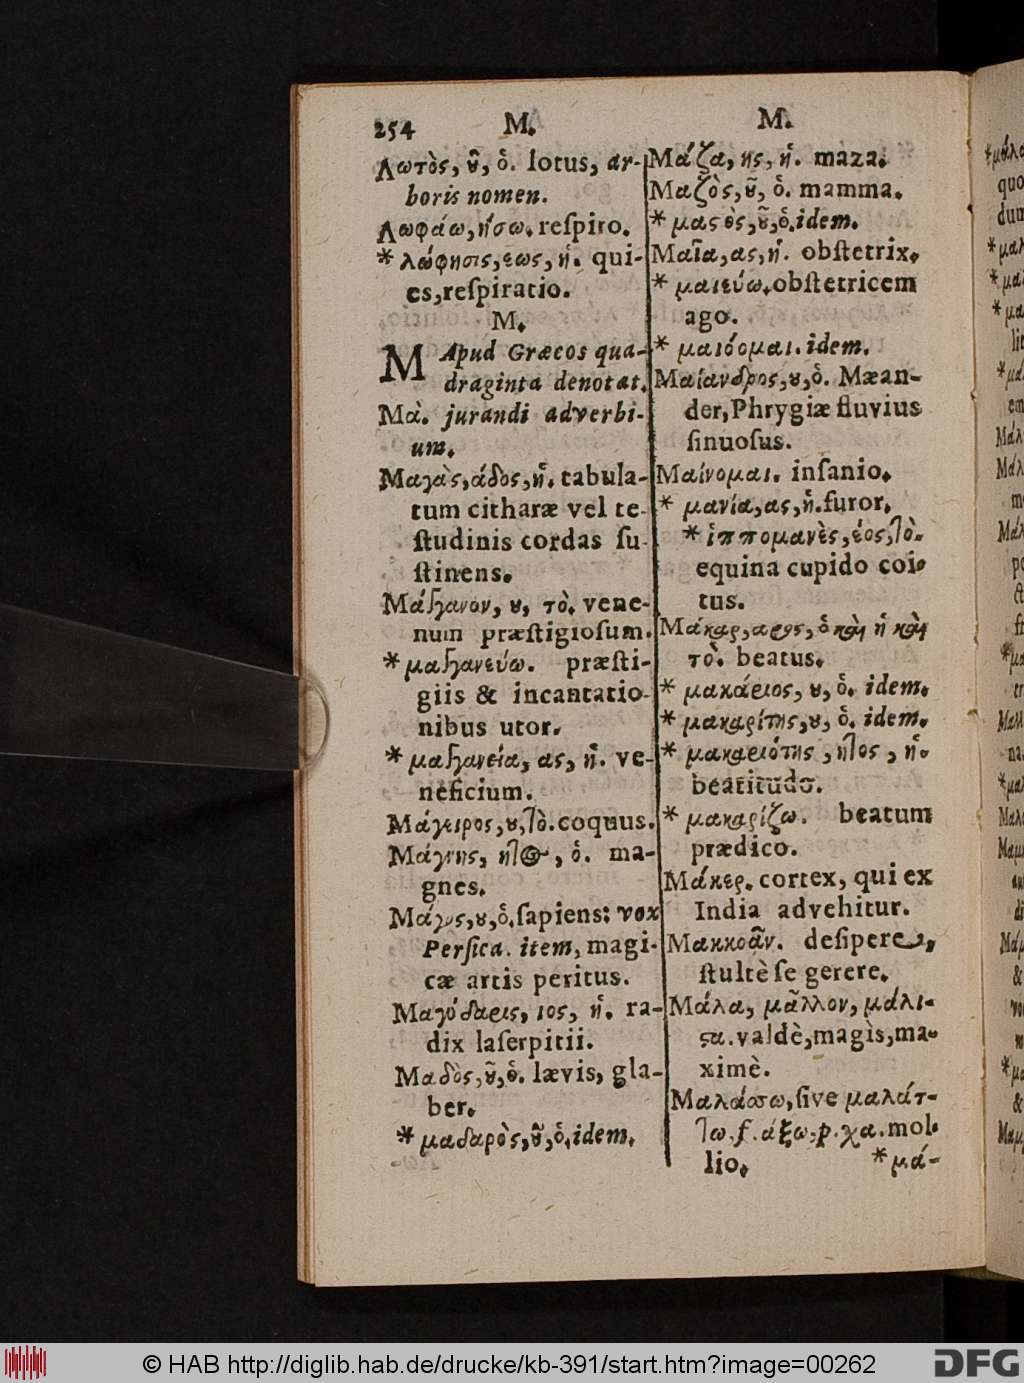 254 M. M.
Λωτὸς, ȣ̂, ὁ. lotus, ar-
boris nomen.
Λωφάω, ήσω. reſpiro.
* λώφησις, εως, ἡ. qui-
es, reſpiratio.
M.
M Apud Græcos qua-
draginta denotat.
Μὰ. jurandi adverbi-
um.
Μαγὰς, άδος, ἡ. tabula-
tum citharæ vel te-
ſtudinis cordas ſu-
ſtinens.
Μάγγανον, ȣ, τὸ. vene-
num præſtigioſum.
* μαγγανεύω. præſti-
giis & incantatio-
nibus utor.
* μαγγανεία, ας, ἡ. ve-
neficium.
Μάγειρος, ȣ, ὁ. coquus.
Μάγνης, ητος, ὁ. ma-
gnes.
Μάγος, ȣ, ὁ. ſapiens: vox
Perſica. item, magi-
cæ artis peritus.
Μαγύδαρις, ιος, ἡ. ra-
dix laſerpitii.
Μαδὸς, ȣ̃, ὁ. lævis, gla-
ber.
* μαδαρὸς, ȣ̃, ὁ. idem.
Μάζα, ης, ἡ. maza.
Μαζὸς, ȣ̃, ὁ. mamma.
* μαϛὸς, ȣ̃, ὁ. idem.
Μαῖα, ας, ἡ. obſtetrix.
* μαιεύω. obſtetricem
ago.
* μαιόομαι. idem.
Μαίανδρος, ȣ, ὁ. Mæan-
der, Phrygiæ fluvius
ſinuoſus.
Μαίνομαι. inſanio.
* μανία, ας, ἡ. furor.
* ἱππομανὲς, έος, τὸ.
equina cupido coi-
tus.
Μάκαρ, αρος, ὁ καὶ ἡ καὶ
τὸ. beatus.
* μακάριος, ȣ, ὁ. idem.
* μακαρίτης, ȣ, ὁ. idem.
* μακαριότης, ητος, ἡ.
beatitudo.
* μακαρίζω. beatum
prædico.
Μάκερ. cortex, qui ex
India advehitur.
Μακκοᾷν. deſipere,
ſtultè ſe gerere.
Μάλα, μᾶλλον, μάλι-
ϛα. valdè, magis, ma-
ximè.
Μαλάσσω, ſive μαλάτ-
τω. f. άξω. p. χα. mol-
lio. * μά-
© HAB http://diglib.hab.de/drucke/kb-391/start.htm?image=00262
DFG